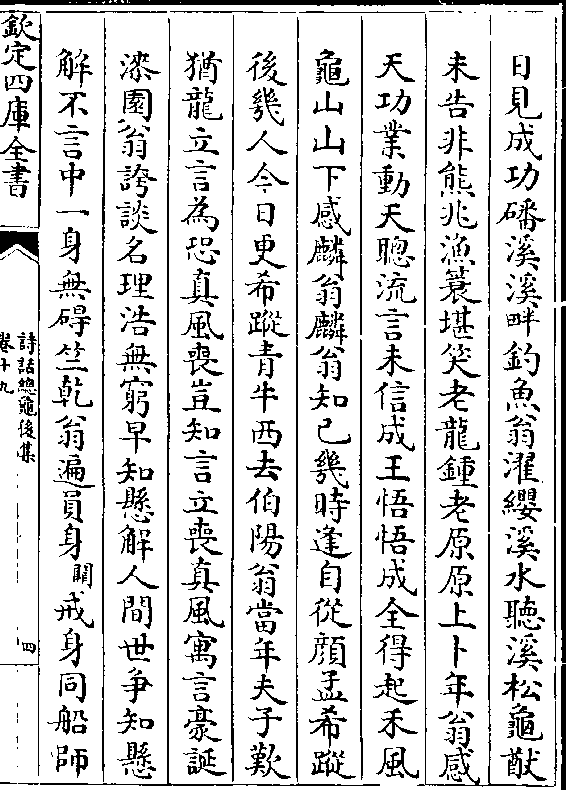 日見成功磻溪溪畔釣魚翁濯纓溪水聽溪松龜猷
未告非熊兆漁蓑堪笑老龍鍾老原原上卜年翁感
天功業動天聰流言未信成王悟悟成全得起禾風
龜山山下感麟翁麟翁知已幾時逢自從顔孟希蹤
後幾人今日更希蹤青牛西去伯陽翁當年夫子歎
猶龍立言為恐真風喪豈知言立喪真風寓言豪誕
漆園翁誇談名理浩無窮早知懸解人間世爭知懸
解不言中一身無碍竺乾翁遍員身闕戒身同船師
欽定四庫全書
詩話總龜後集
卷十九
四